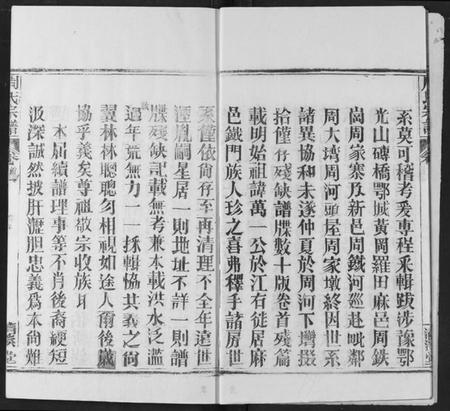 系莫可稽考爰專程釆輯跋涉豫鄂
光山磚橋鄂城黃岡羅田麻邑周鉄
崗周家寨及新邑周鐵河廵赴毗鄰
周大塆周河頭屋周家墩終因世系
諸異協和未遂仲夏於周河下塆掇
拾僅存殘缺譜牒數十版卷首殘篇
載明始祖諱萬一公於江右徒居麻
邑鐵門族人珍之喜弗釋手諸房世
系僅依尙存至再清理不全年遠世
湮胤嗣星居一則地址不詳一則譜
牒殘缺記載無考兼本載洪水泛滥
過年荒無力一一採輯恊共義之尙
翼林林聰聰勿相視如途人爾後
協乎義矣尊祖敬宗收族耳
本屆續譜理事等不肖後裔綆短
汲深誠然披肝瀝胆忠義爲本尙難
周氏宗譜
卷
堂